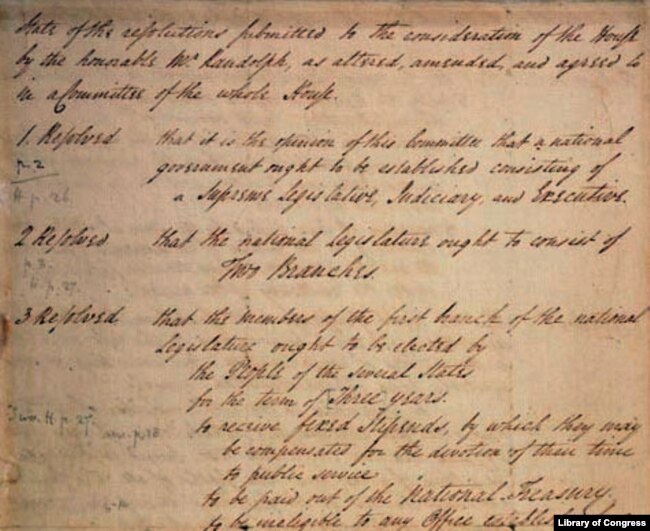 State of the resolutions submitted to the consideration of the House
by the honorable Mr. Randolph, as altered, amended, and agreed to
in a Committee of the whole House.
1. Resolved that it is the opinion of this Committee that a national
p. 2
government ought to be established consisting of
H p. 26
a Supreme Legislative, Judiciary, and Executive.
2 Resolved that the national Legislature ought to consist of
p. 3.
Two Branches.
H. p. 27.
3 Resolved that the members of the first branch of the national
Legislature ought to be elected by
the People of the several States
for the term of Three years.
H. p. 27
to receive fixed Stipends, by which they may
be compensated for the devotion of their time
to public service
to be paid out of the National Treasury.
to be ineligible to any Office
Library of Congress